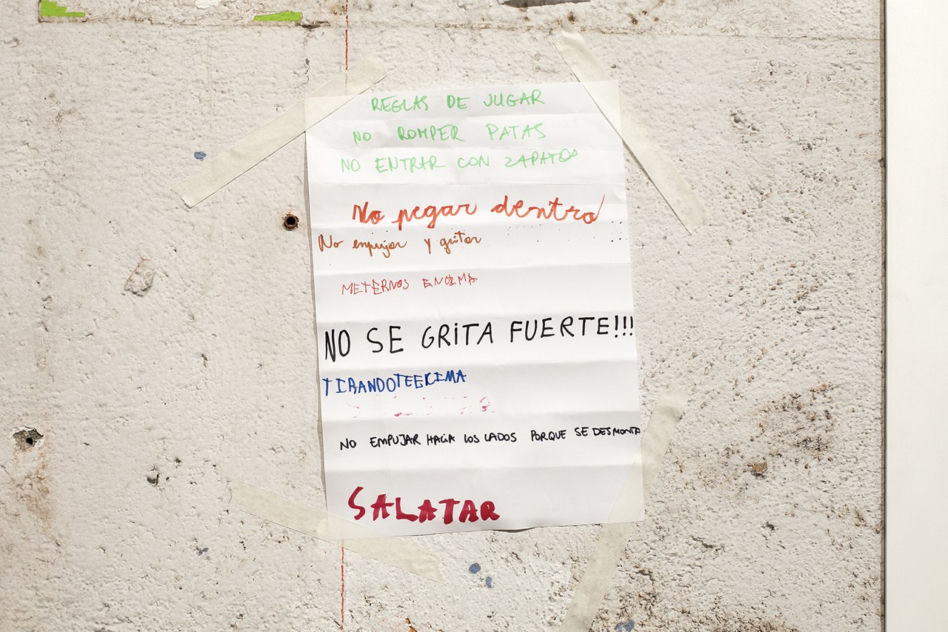 REGLAS DE JUGAR
NO ROMPER PATAS
NO ENTRAR CON ZAPATOS
No pegar dentro
No empujar y gritar
METERNOS ENCIMA
NO SE GRITA FUERTE!!!
TIRANDOTEECIMA
NO EMPUJAR HACIA LOS LADOS PORQUE SE DESMONTA
SALATAR